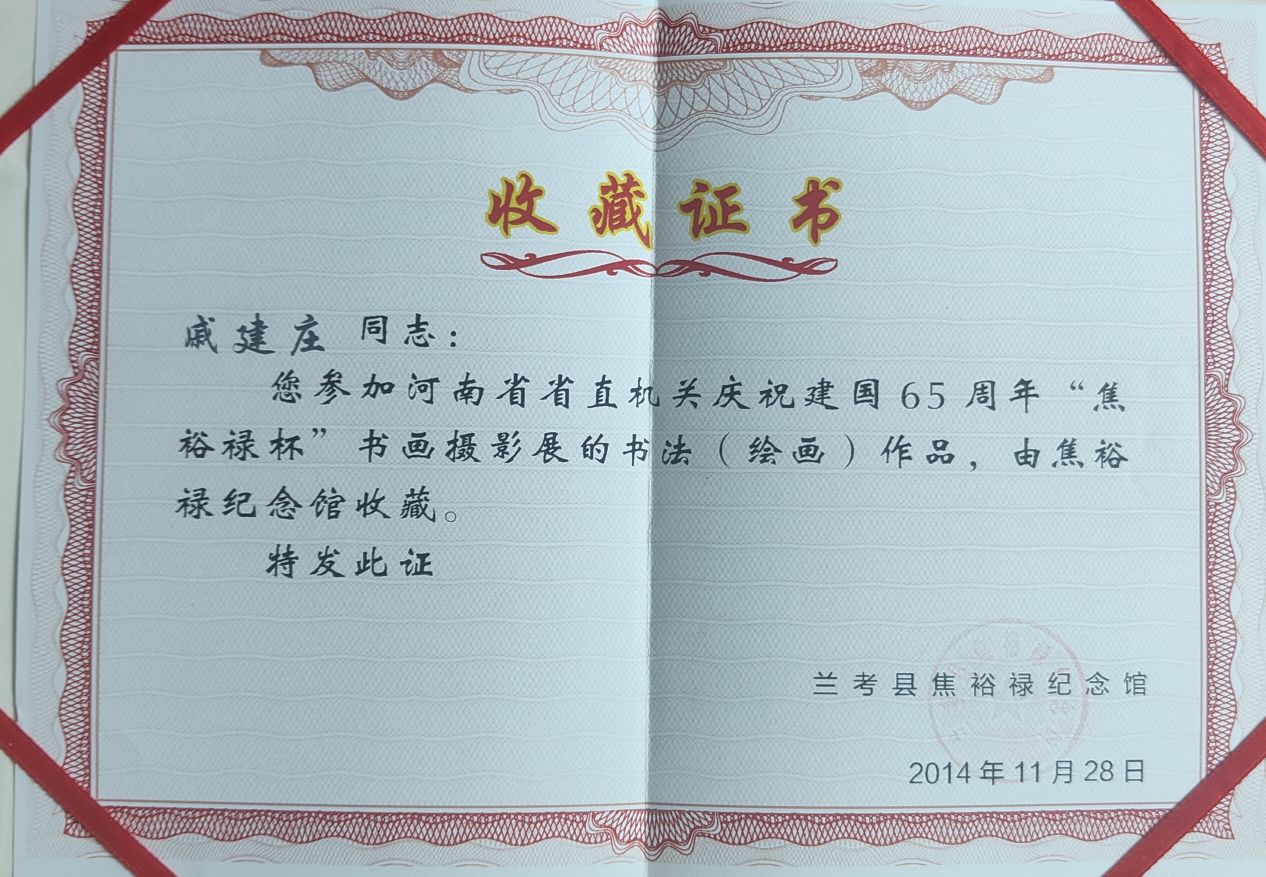 收藏证书
戚建庄 同志：
您参加河南省省直机关庆祝建国65周年“焦
裕禄杯”书画摄影展的书法（绘画）作品，由焦裕
禄纪念馆收藏。
特发此证
兰考县焦裕禄纪念馆
2014年11月28日